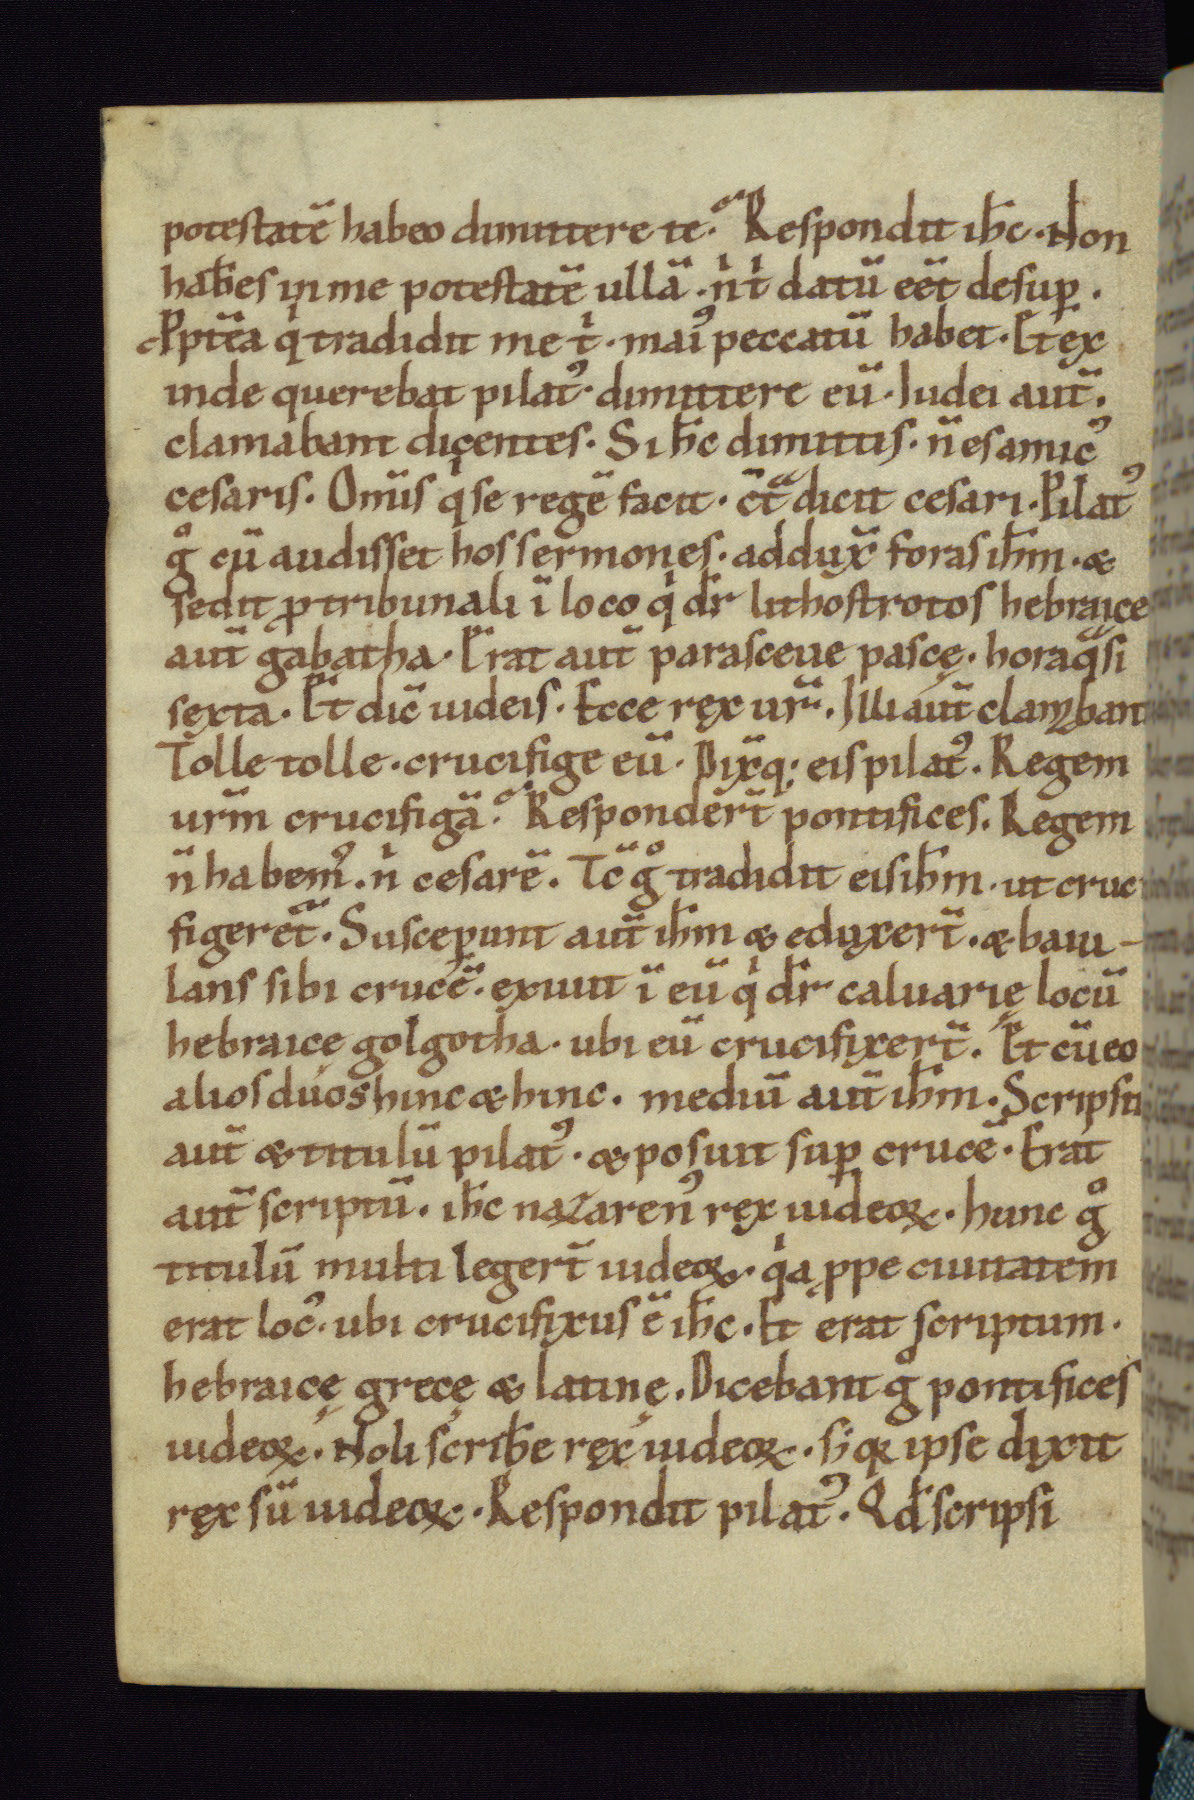 potestatē habeo dimittere te. Respondit ih̅c. Non
hab̅es in me potestatē ullā. nͥ tͥ datū eēt desup̲.
Ꝓpt̅ea qͥ tradidit me tͥ. maiꝰ peccatū habet. Et ex
inde querebat pilatꝰ dimittere eū. Iudei aut̅.
clamabant dicentes. Si h̅c dimittis. n̅ es amicꝰ
cesaris. Om̅is qͥ se regē facit. c̅t̅ᵃdicit cesari. Pilatꝰ
gͦ cū audisset hos sermones. addux̅ foras ih̅m. &
sedit ꝓ tribunali ī loco qͥ d̅r lithostrotos hebraice
aut̅ gabatha. Erat aut̅ parasceue pascę. hora qͣsi
sexta. Et dic̅ iudeis. Ecce rex ur̅. Illi aut̅ clamabant
Tolle tolle. crucifige eū. Dix̅ q; eis pilatꝰ. Regem
ur̅m crucifigā. Responder̅t pontifices. Regem
n̅ habemꝰ. nͥ cesarē. Tc̅ gͦ tradidit eis ih̅m. ut cruci
figeret᷑. Suscep̲unt aut̅ ih̅m & eduxer̅t. & baiu-
lans sibi crucē. exiuit ī eū qͥ d̅r caluarię locū
hebraicę golgotha. ubi eū crucifixer̅t. Et cū eo
alios duos hinc & hinc. mediū aut̅ ih̅m. Scripsit
aut̅ & titulū pilatꝰ. & posuit sup̲ crucē. Erat
aut̅ scriptū. ih̅c nazarenꝰ rex iudeoꝝ. hunc gͦ
titulū multi leger̅t iudeoꝝ. qͥa ꝓpe ciuitatem
erat locꝰ. ubi crucifixus ē ih̅c. Et erat scriptum.
hebraicę grecę & latinę. Dicebant gͦ pontifices
iudeoꝝ. Noli scrib̅e rex iudeoꝝ. s; qꝛ ipse dixit
rex sū iudeoꝝ. Respondit pilatꝰ. Qd̅ scripsi